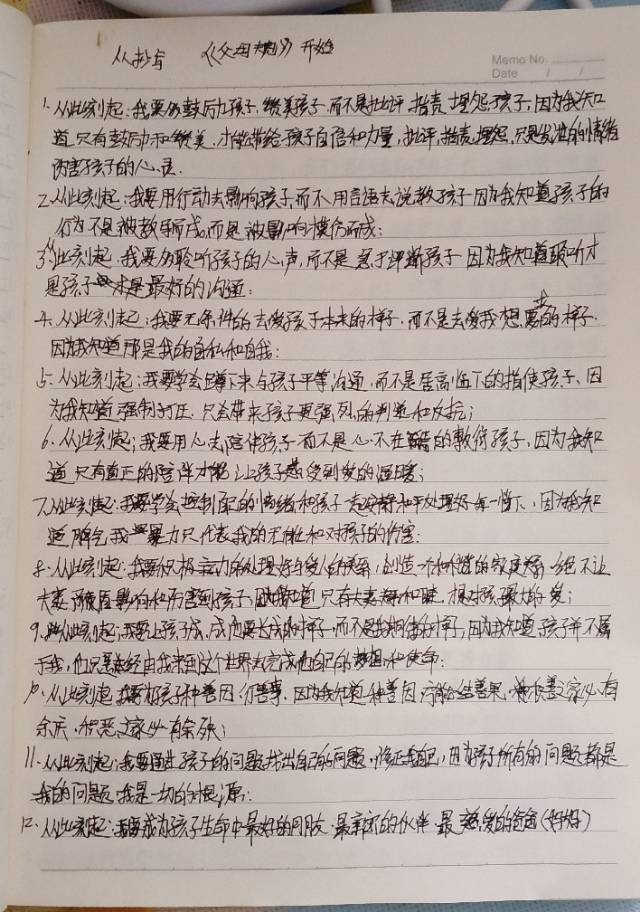 从抄写 《父母规》 开始
Memo No.
Date / /
1. 从此刻起:我要多鼓励孩子,赞美孩子,而不是批评,指责,埋怨孩子,因为我知
道只有鼓励和赞美,才能带给孩子自信和力量,批评,指责,埋怨,只是发泄的情绪
伤害孩子的心灵.
2. 从此刻起:我要用行动去影响孩子,而不用言语去说教孩子.因为我知道孩子的
行为不是被教导而成,而是被影响模仿而成;
3. 从此刻起:我要多聆听孩子的心声,而不是急于评断孩子.因为我知道聆听才
是孩子 才是最好的沟通;
4. 从此刻起:我要无条件的去爱孩子本来的样子,而不是去爱我想要的样子.
因为我知道那是我的自私和自我;
5. 从此刻起:我要学会蹲下来与孩子平等沟通,而不是居高临下的指使孩子、因
为我知道强制打压,只会带来孩子更强烈的判逆和反抗;
6. 从此刻起;我要用心去陪伴孩子而不是心不在焉的敷衍孩子,因为我知
道只有真正的陪伴才能让孩子感受到爱的温暖;
7. 从此刻起:我要学会控制自己的情绪和孩子 和平处理好每一个当下,因为我知
道脾气 暴力只代表我的无能和对孩子的伤害;
8. 从此刻起:我要积极主动的处理好与爱人的关系,创造一个和谐的家庭环境,绝不让
夫妻 影响和伤害到孩子,因为我知道只有夫妻和睦,是对孩子最大的爱;
9. 从此刻起:我要让孩子成为他要长成的样子,而不是我期待的样子,因为我知道孩子并不属
于我,他只是经由我来到这个世界去完成他自己的梦想和使命;
10. 从此刻起 我要为孩子种善因,行善事,因为我知道种善因,方能结善果,积善之家必有
余庆,积恶之家必有余殃;
11. 从此刻起:我要通过孩子的问题找出自己的问题,修正自己,因为孩子所有的问题都是
我的问题,我是一切的根源;
12. 从此刻起:我要成为孩子生命中最好的朋友,最亲密的伙伴,最慈爱的爸爸(妈妈)